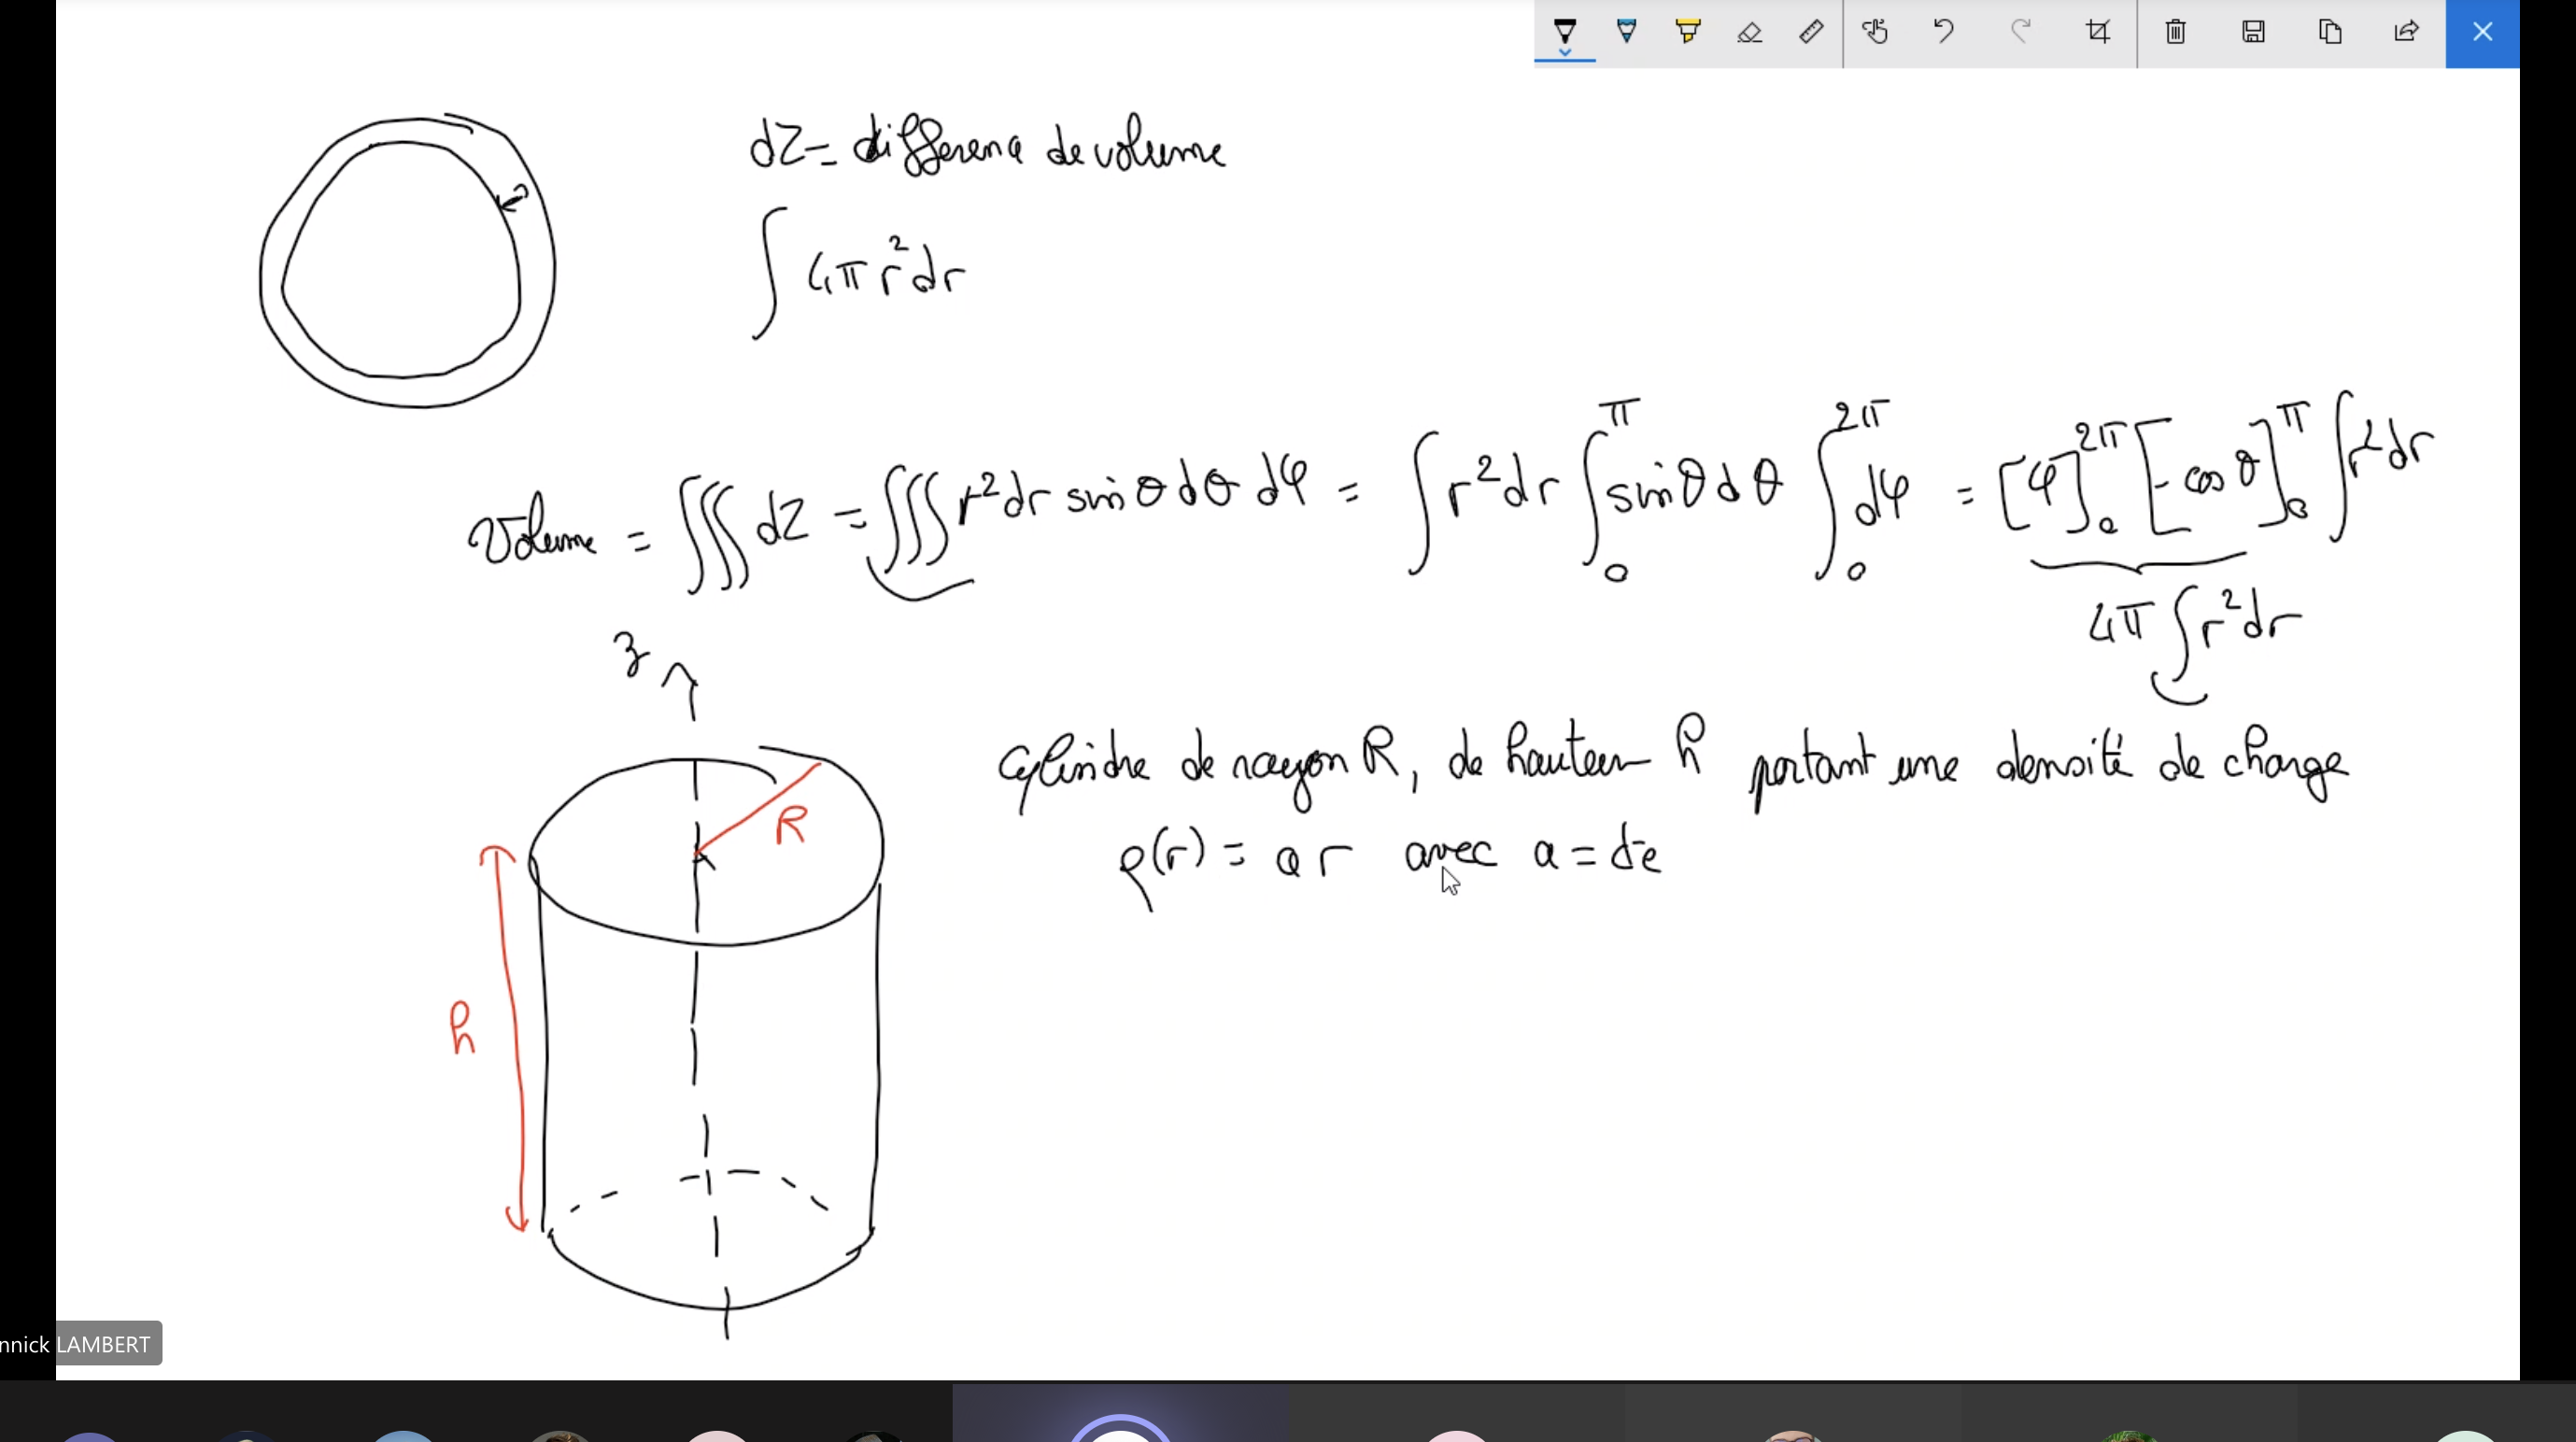 dZ = difference de volume
∫ 4π r² dr
Volume = ∭ dZ = ∭ r² dr sin θ dθ dφ = ∫ r² dr ∫₀^π sin θ dθ ∫₀^2π dφ = [φ]₀^2π [- cos θ]₀^π ∫ r² dr
4π ∫ r² dr
z
Cylindre de rayon R, de hauteur h portant une densité de charge
R
ρ(r) = a r avec a = cte
h
nnick LAMBERT